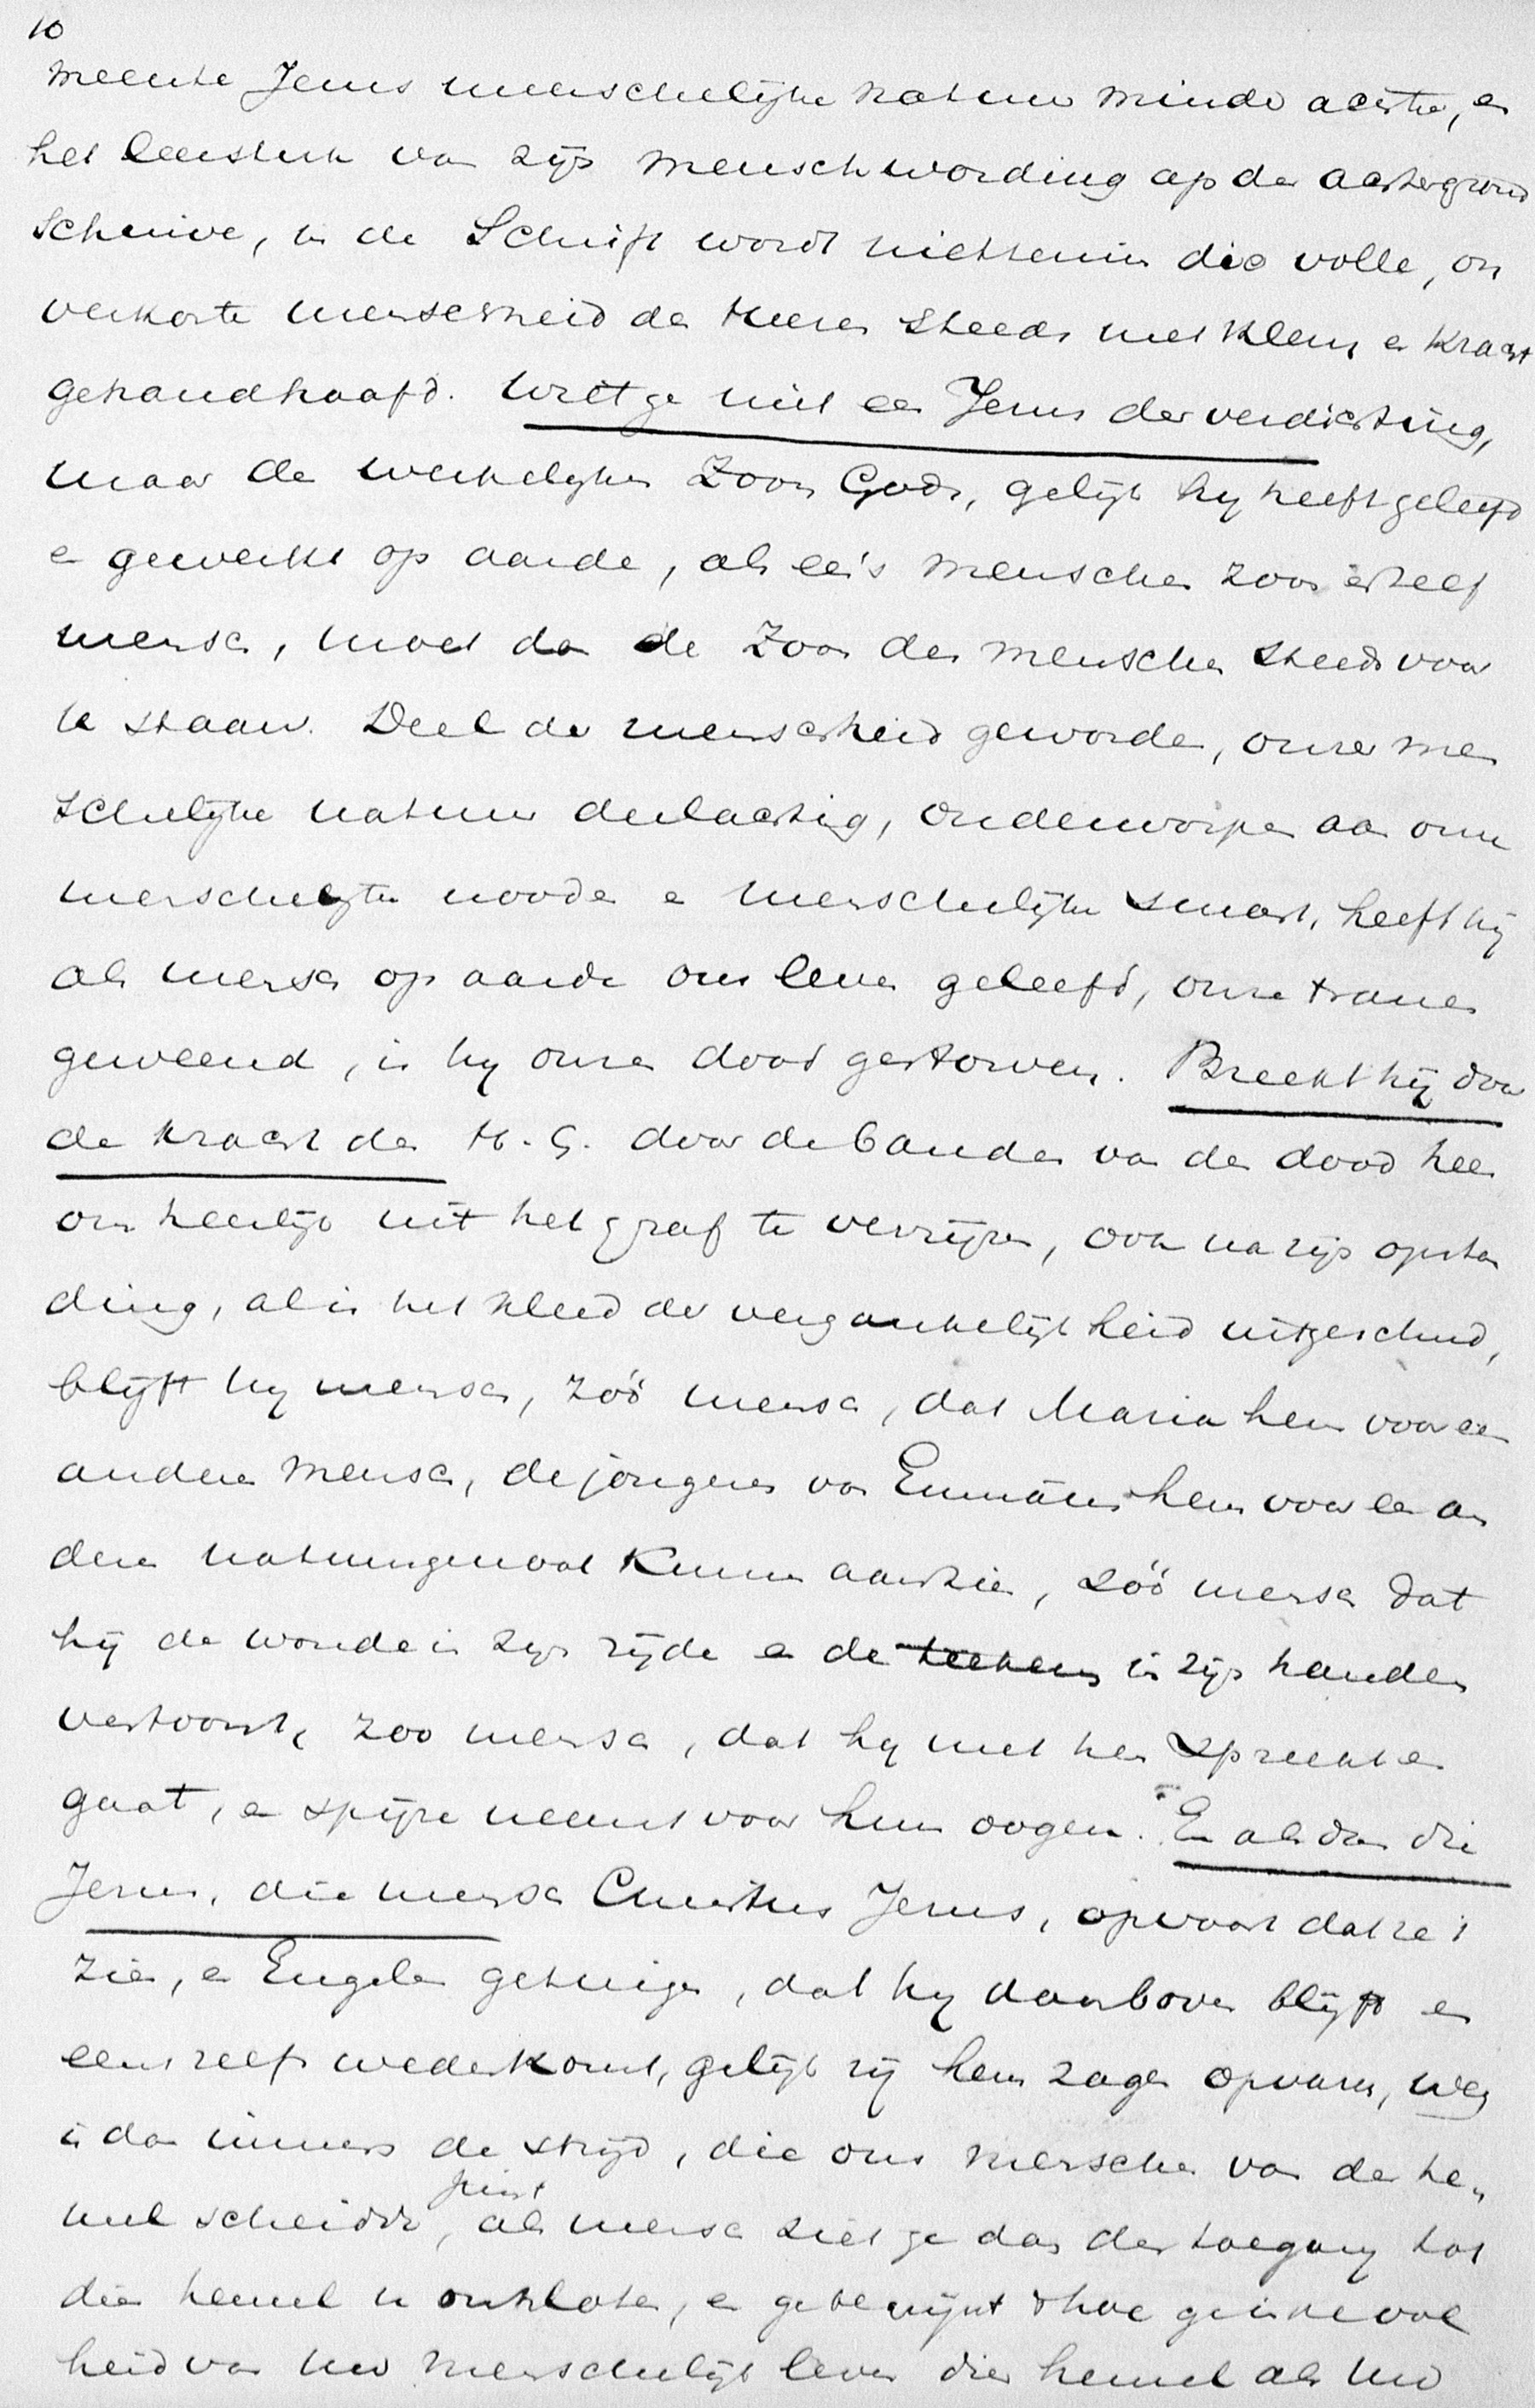 10
meente Jezus menschelijke natuur minder achte, en
het leerstuk van zijn menschwording op den achtergrond
schuive, in de Schrift wordt niettemin die volle, on
verkorte menschheid des Heeren steeds met klem en kracht
gehandhaafd. Wilt ge niet een Jezus der verdichting,
maar den werkelijken Zoon Gods, gelijk hij heeft geleefd
en gewerkt op aarde, als een's menschen zoon en zelf
mensch, moet dan de Zoon des menschen steeds voor
u staan. Deel der menschheid geworden, onzer men
schelijke natuur deelachtig, onderworpen aan onze
menschelijke nooden en menschelijke smart, heeft hij
als mensch op aarde ons leven geleefd, onze tranen
geweend, is hij onzen dood gestorven. Breekt hij door
de kracht des H. G. door de banden van den dood heen
om heerlijk uit het graf te verrijzen, ook na zijn opstan
ding, al is het kleed der vergankelijkheid uitgeschud,
blijft hij mensch, zóó mensch, dat Maria hem voor een
anderen mensch, de jongeren van Emmaüs hem voor een an
deren natuurgenoot kunnen aanzien, zóó mensch dat
hij de wonde in zijn zijde en de teekens in zijn handen
vertoont, zoo mensch, dat hij met hen spreekt en
gaat, en spijze neemt voor hun oogen. En als dan die
Jezus, die mensch Christus Jezus, opvaart dat ze 't
zien, en Engelen getuigen, dat hij daarboven blijft en
eens zelf wederkomt, gelijk zij hem zagen opvaren, weg
is dan immers de strijd, die ons menschen van den he,
mel scheidde, juist als mensch ziet ge dan den toegang tot
dien hemel u ontsloten, en ge begrijpt hoe ge in de vol
heid van uw menschelijk leven dien hemel als uw